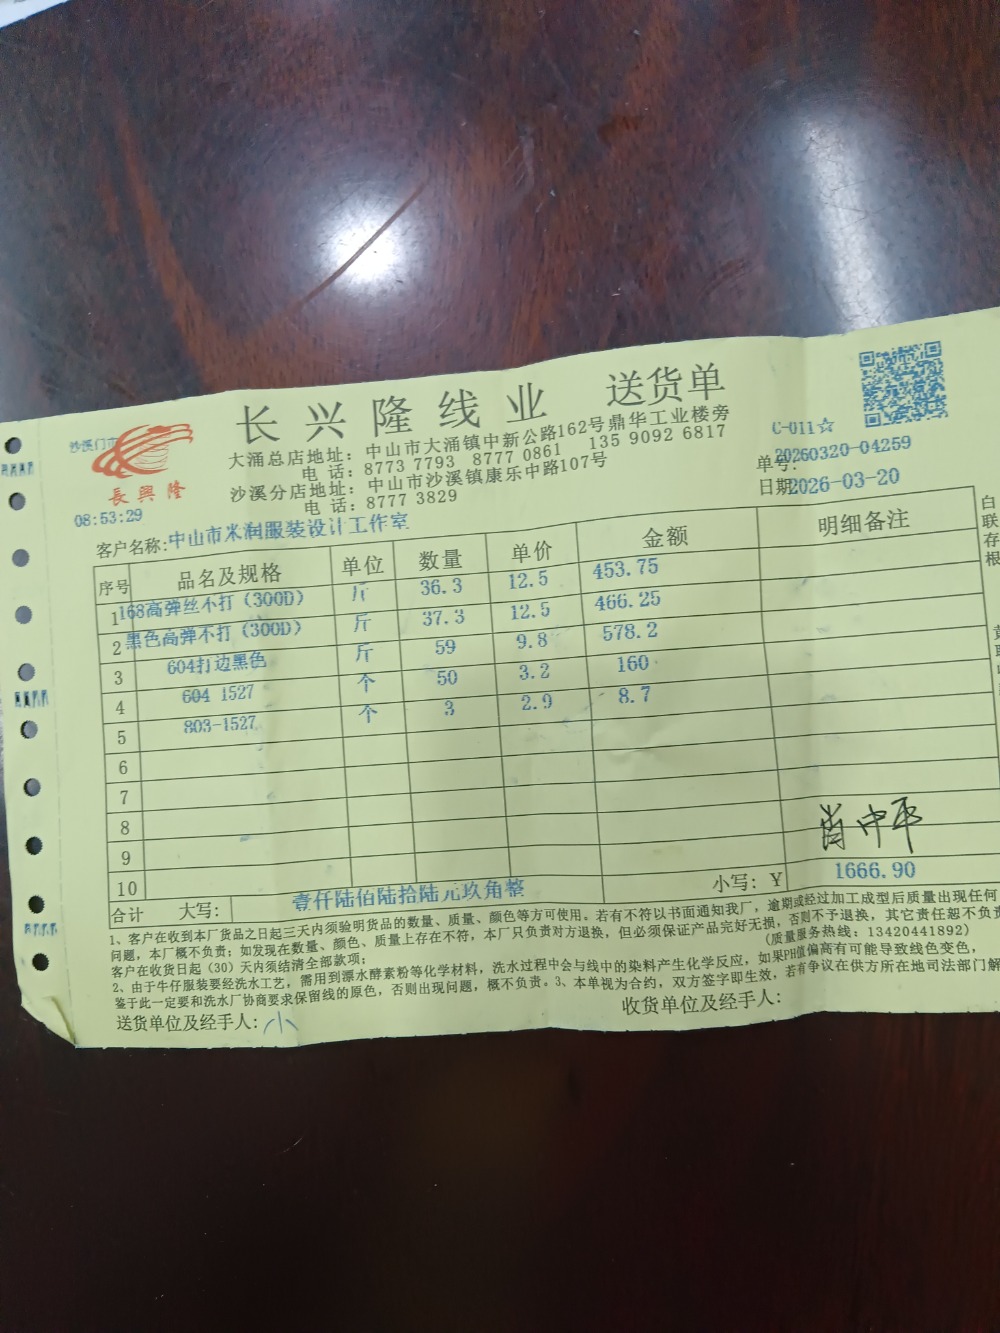 长兴隆线业 送货单
沙溪门市
長興隆
08:53:29
大涌总店地址：中山市大涌镇中新公路162号鼎华工业楼旁
电 话：8773 7793 8777 0861 135 9092 6817
沙溪分店地址：中山市沙溪镇康乐中路107号
电 话：8777 3829
C-011☆
单号：20260320-04259
日期2026-03-20
客户名称：中山市米润服装设计工作室
序号 品名及规格 单位 数量 单价 金额 明细备注
1 168高弹丝不打（300D） 斤 36.3 12.5 453.75
2 黑色高弹不打（300D） 斤 37.3 12.5 466.25
3 604打边黑色 斤 59 9.8 578.2
4 604 1527 个 50 3.2 160
5 803-1527 个 3 2.9 8.7
6
7
8
9
10
合计 大写：壹仟陆佰陆拾陆元玖角整 小写：Y 1666.90
1、客户在收到本厂货品之日起三天内须验明货品的数量、质量、颜色等方可使用。若有不符以书面通知我厂，逾期或经过加工成型后质量出现任何
问题，本厂概不负责；如发现在数量、颜色、质量上存在不符，本厂只负责对方退换，但必须保证产品完好无损，否则不予退换，其它责任恕不负责
客户在收货日起（30）天内须结清全部款项； （质量服务热线：13420441892）
2、由于牛仔服装要经洗水工艺，需用到漂水酵素粉等化学材料，洗水过程中会与线中的染料产生化学反应，如果PH值偏高有可能导致线色变色，
鉴于此一定要和洗水厂协商要求保留线的原色，否则出现问题，概不负责。3、本单视为合约，双方签字即生效，若有争议在供方所在地司法部门解
送货单位及经手人：小 收货单位及经手人：
白联存根